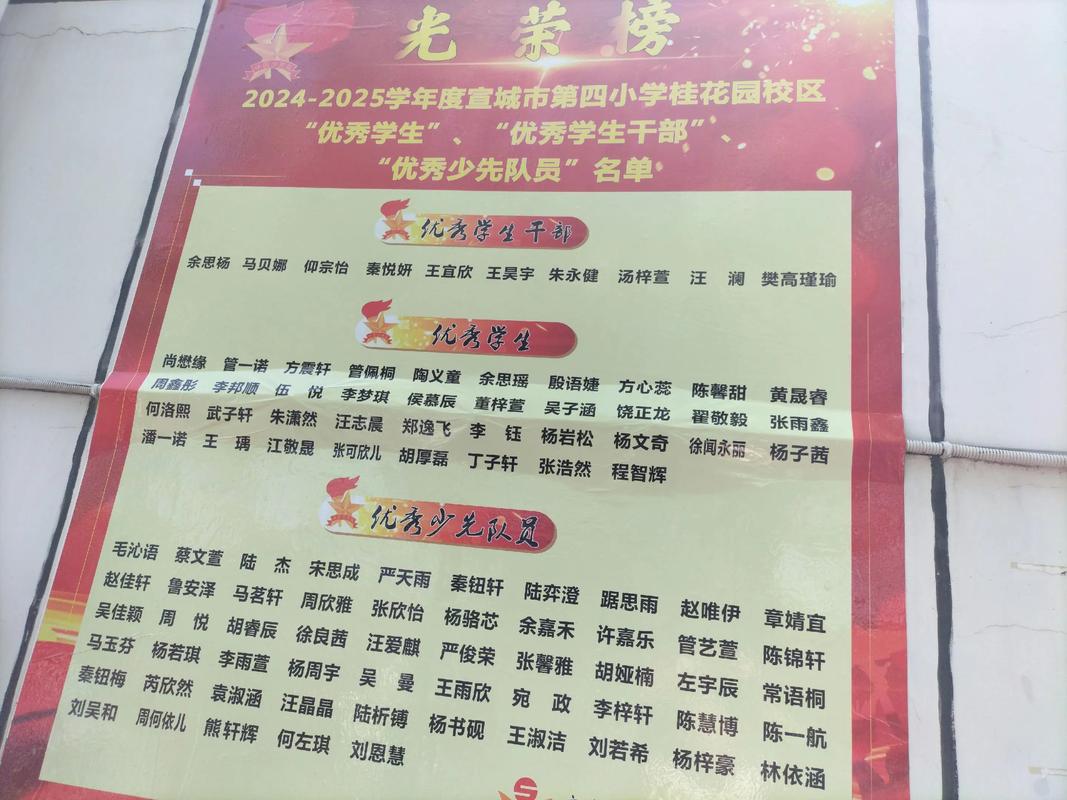 光荣榜
2024-2025学年度宣城市第四小学桂花园校区
“优秀学生”、“优秀学生干部”、
“优秀少先队员”名单
优秀学生干部
余思杨 马贝娜 仰宗怡 秦悦妍 王宜欣 王昊宇 朱永健 汤梓萱 汪 澜 樊高瑾瑜
优秀学生
尚懋缘 管一诺 方震轩 管佩桐 陶义童 余思瑶 殷语婕 方心蕊 陈馨甜 黄晟睿
周鑫彤 李邦顺 伍 悦 李梦琪 侯慕辰 董梓萱 吴子涵 饶正龙 翟敬毅 张雨鑫
何洛熙 武子轩 朱潇然 汪志晨 郑逸飞 李 钰 杨岩松 杨文奇 徐闻永丽 杨子茜
潘一诺 王 瑀 江敬晟 张可欣儿 胡厚磊 丁子轩 张浩然 程智辉
优秀少先队员
毛沁语 蔡文萱 陆 杰 宋思成 严天雨 秦钮轩 陆弈澄 踞思雨 赵唯伊 章婧宜
赵佳轩 鲁安泽 马茗轩 周欣雅 张欣怡 杨骆芯 余嘉禾 许嘉乐 管艺萱 陈锦轩
吴佳颖 周 悦 胡睿辰 徐良茜 汪爱麒 严俊荣 张馨雅 胡娅楠 左宇辰 常语桐
马玉芬 杨若琪 李雨萱 杨周宇 吴 曼 王雨欣 宛 政 李梓轩 陈慧博 陈一航
秦钮梅 芮欣然 袁淑涵 汪晶晶 陆析镈 杨书砚 王淑洁 刘若希 杨梓豪 林依涵
刘吴和 周何依儿 熊轩辉 何左琪 刘恩慧